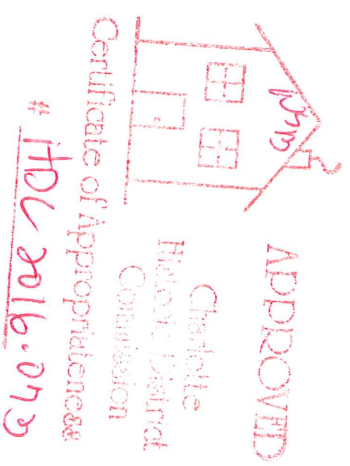 APPROVED
Charlotte
Historic District
Commission
Certificate of Appropriateness
# HDC 2016-049